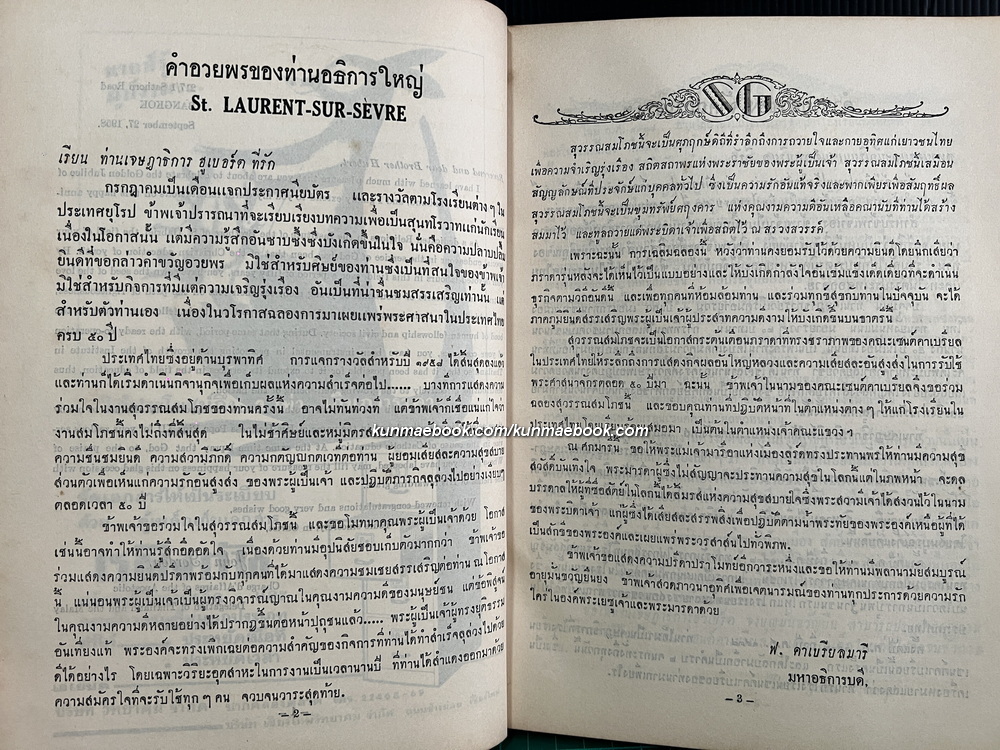 คำอวยพรของท่านอธิการใหญ่
St. LAURENT-SUR-SÈVRE
เรียน ท่านเจษฎาธิการ ฮูเบอร์ต ที่รัก
กรกฎาคมเป็นเดือนแจกประกาศนียบัตร และรางวัลตามโรงเรียนต่างๆใน
ประเทศยุโรป ข้าพเจ้าปรารถนาที่จะเรียบเรียงบทความเพื่อเป็นสุนทรีวาทแก่นักเรียน
เนื่องในโอกาสนั้น แต่มีความรู้สึกอันซาบซึ้งซึ่งบังเกิดขึ้นในใจ นั่นคือความปลาบปลื้ม
ยินดีที่ขอกล่าวคำขวัญอวยพร มิใช่สำหรับศิษย์ของท่านซึ่งเป็นที่สนใจของข้าพเจ้า
มิใช่สำหรับกิจการที่มีแต่ความเจริญรุ่งเรือง อันเป็นที่น่าชื่นชมสรรเสริญเท่านั้น แต่
สำหรับตัวท่านเอง เนื่องในวโรกาสฉลองการมาเผยแพร่พระศาสนาในประเทศไทย
ครบ ๕๐ ปี
ประเทศไทยซึ่งอยู่ด้านบุรพาทิศ การแจกรางวัลสำหรับปี ๑๙๕๘ ได้สิ้นสุดลงแล้ว
และท่านก็ได้เริ่มดำเนินกิจานุกิจเพื่อเก็บผลแห่งความสำเร็จต่อไป...... บางทีการแสดงความ
ร่วมใจในงานสุวรรณสมโภชของท่านครั้งนี้ อาจไม่ทันท่วงที แต่ข้าพเจ้าก็เชื่อแน่แก่ใจว่า
งานสมโภชนี้คงไม่ถึงที่สิ้นสุด ในไม่ช้าศิษย์และหมู่มิตร
kunmaebook.com/kunmaebook.com
ความชื่นชมยินดี ความสวามิภักดิ์ ความกตัญญูกตเวทีต่อท่าน ผู้ยอมเสียสละความสุขสบาย
ส่วนตัวเพื่อเห็นแก่ความรักอันสูงส่ง ของพระผู้เป็นเจ้า และปฏิบัติภารกิจลุล่วงไปอย่างเงียบๆ
ตลอดเวลา ๕๐ ปี
ข้าพเจ้าขอร่วมใจในสุวรรณสมโภชนี้ และขอโมทนาคุณพระผู้เป็นเจ้าด้วย โอกาส
เช่นนี้อาจทำให้ท่านรู้สึกอึดอัดใจ เนื่องด้วยท่านมีอุปนิสัยชอบเก็บตัวมากกว่า ข้าพเจ้าขอ
ร่วมแสดงความยินดีปรีดาพร้อมกับทุกคนที่ได้มาแสดงความชมเชยสรรเสริญต่อท่าน ณ โอกาส
นี้ แน่นอนพระผู้เป็นเจ้าเป็นผู้ทรงวิจารณ์ญาณในคุณงามความดีของมนุษย์ชน แต่ข้อพิสูจน์
ในคุณงามความดีหลายอย่างได้ปรากฏขึ้นต่อหน้าปุถุชนแล้ว..... พระผู้เป็นเจ้าผู้ทรงยุตติธรรม
อันเที่ยงแท้ พระองค์จะทรงเพิกเฉยต่อความสำคัญของกิจการที่ท่านได้ทำสำเร็จลุล่วงไปด้วย
ดีได้อย่างไร โดยเฉพาะวิริยะอุตสาหะในการงานเป็นเวลานานปี ที่ท่านได้สำแดงออกมาด้วย
ความสมัครใจที่จะรับใช้ทุกๆคน จวบจนวาระสุดท้าย.
– 2 –
SG
สุวรรณสมโภชนี้จะเป็นศุภฤกษ์ดิถีที่รำลึกถึงการถวายใจและกายอุทิศแก่เยาวชนไทย
เพื่อความจำเริญรุ่งเรือง สถิตสถาพรแห่งพระราชัยของพระผู้เป็นเจ้า สุวรรณสมโภชนี้เสมือน
สัญญลักษณ์ที่ประจักษ์แก่บุคคลทั่วไป ซึ่งเป็นความรักอันแท้จริงและพากเพียรเพื่อสัมฤทธิ์ผล
สุวรรณสมโภชนี้จะเป็นขุมทรัพย์ศฤงคาร แห่งคุณงามความดีอันเหลือคณานับที่ท่านได้สร้าง
สมมาไว้ และทูลถวายแด่พระบิดาเจ้าเพื่อสถิตไว้ ณ สรวงสวรรค์
เพราะฉะนั้น การเฉลิมฉลองนี้ หวังว่าท่านคงยอมรับไว้ด้วยความยินดีโดยนึกเสียว่า
ภราดารุ่นหลังจะได้เห็นไว้เป็นแบบอย่างและให้บังเกิดกำลังใจอันเข้มแข็งเด็ดเดี่ยวที่จะดำเนิน
ธุรกิจตามวิถีอันดีนี้ และเพื่อทุกคนที่ห้อมล้อมท่าน และร่วมทุกข์สุขกับท่านในปัจจุบัน จะได้
ภาคภูมิยินดีสรรเสริญพระผู้เป็นเจ้าผู้ประสาทความดีงามให้บังเกิดขึ้นบนชาตรีนี้
สุวรรณสมโภชจะเป็นโอกาสกระตุ้นเตือนภราดาที่ทรงชราภาพของคณะเซนต์คาเบรียล
ในประเทศไทยให้ระลึกถึงการแสดงถึงผลงานอันใหญ่หลวงและความเสียสละอันสูงส่งในการรับใช้
พระศาสนจักรตลอด ๕๐ ปีมา ฉะนั้น ข้าพเจ้าในนามของคณะเซนต์คาเบรียลจึงขอร่วม
ฉลองสุวรรณสมโภชนี้ และขอบคุณท่านที่ปฏิบัติหน้าที่ในตำแหน่งต่างๆ ให้แก่โรงเรียนใน
ประเทศไทย เป็นต้นในตำแหน่งเจ้าคณะแขวงฯ
ณ ศุภมารนี้ ขอให้พระแม่เจ้ามารีอาแห่งเมืองลูร์ดทรงประทานพรให้ท่านมีความสุข
สวัสดิ์บันเทิงใจ พระมารดาผู้ซึ่งไม่สัญญาจะประทานความสุขในโลกนี้แต่ในภพหน้า จะดล
บรรดาลให้ผู้ที่ซื่อสัตย์ในโลกนี้ได้ลิ้มรสแห่งความสุขสบายใจซึ่งพระสวามีเจ้าได้สงวนไว้ในนาม
ของพระบิดาเจ้า แก่ผู้ซึ่งได้เสียสละสรรพสิ่งเพื่อปฏิบัติตามน้ำพระทัยของพระองค์เหนือผู้ที่ได้
เป็นสักขีของพระองค์และเผยแพร่พระวรสารสืบไปทั่วพิภพ.
ข้าพเจ้าขอแสดงความปรีดาปราโมทย์อีกวาระหนึ่งและขอให้ท่านมีพลานามัยสมบูรณ์
อายุมั่นขวัญยืนยง ข้าพเจ้าสวดภาวนาอุทิศเพื่อเจตนารมณ์ของท่านทุกประการด้วยความรัก
ใคร่ในองค์พระเยซูเจ้าและพระมารดาด้วย
ฟ. คาเบรียลมารี
มหาอธิการบดี.
– 3 –